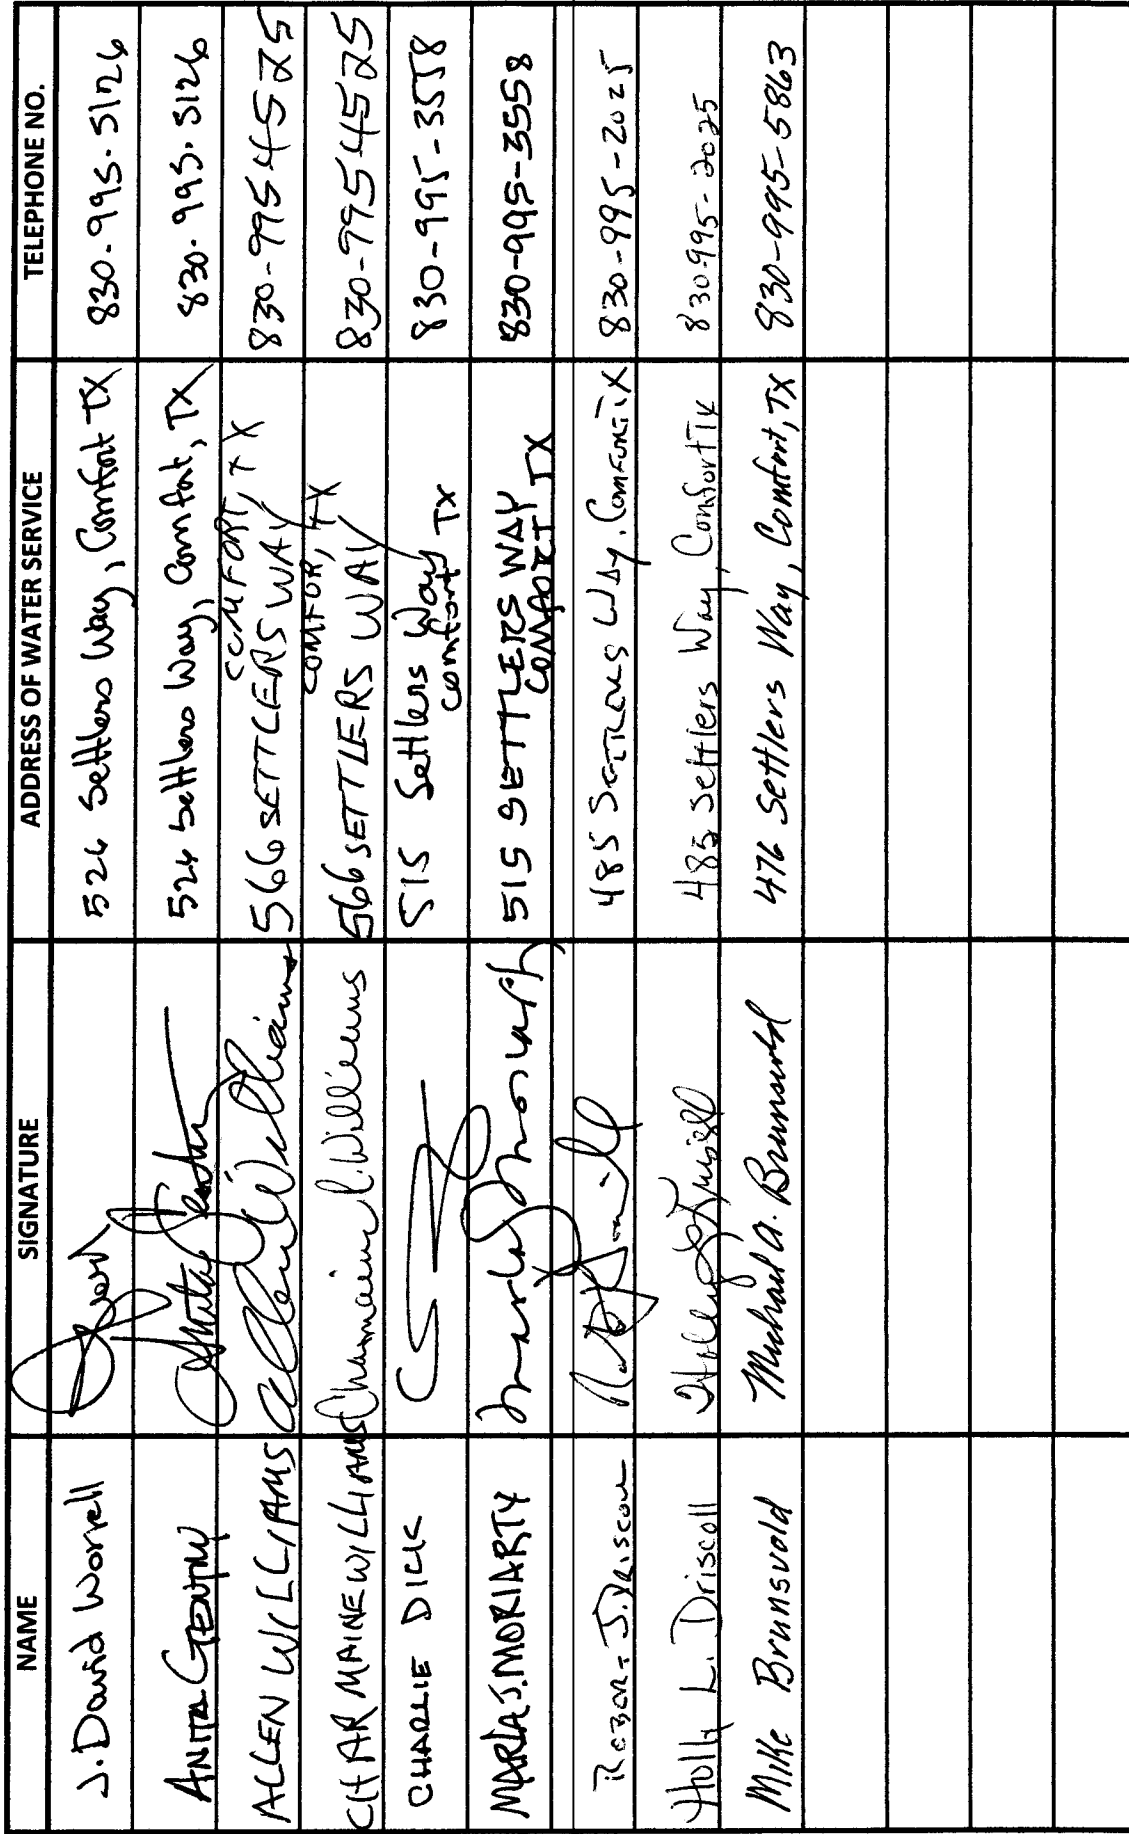 NAME SIGNATURE ADDRESS OF WATER SERVICE TELEPHONE NO.
J. David Worrell 526 Settlers Way, Comfort TX 830-995-5126
ANITA GENTRY 526 Settlers Way, Comfort, TX 830-995-5126
ALLEN WILLIAMS Allen Williams 566 SETTLERS WAY COMFORT, TX 830-995 4525
CHARMAINE WILLIAMS Charmaine L. Williams 566 SETTLERS WAY COMFOR, TX 830-995 4525
CHARLIE DICK 515 Settlers Way Comfort TX 830-995-3558
MARLA J. MORIARTY Marla J Moriarty 515 SETTLERS WAY COMFORT TX 830-995-3558
ROBERT J. DRISCOLL 485 SETTLERS WAY, COMFORT TX 830-995-2025
Holly L. Driscoll Holly L Driscoll 485 Settlers Way, Comfort TX 830 995-2025
Mike Brunsvold Michael A. Brunsvold 476 Settlers Way, Comfort, TX 830-995-5863